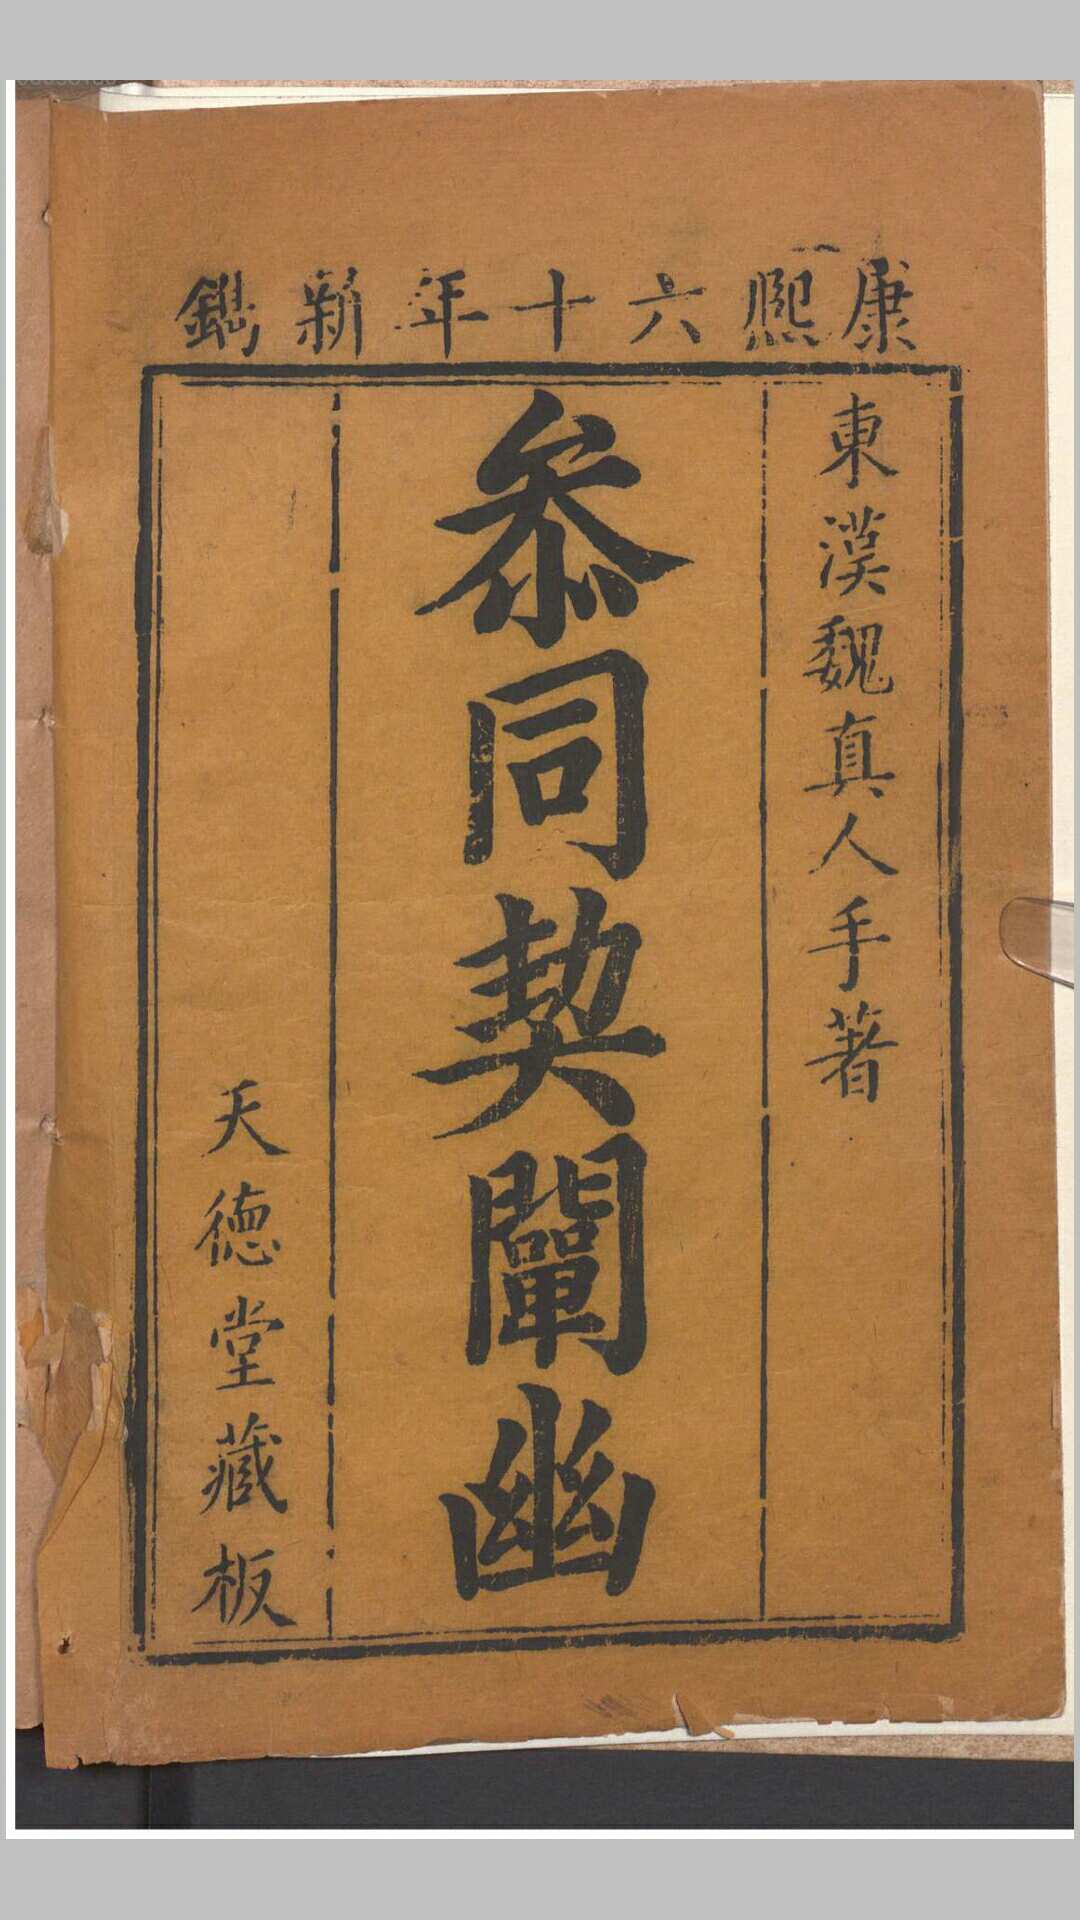 康熙六十年新鐫
東漢魏真人手著
叅同契闡幽
天德堂藏板